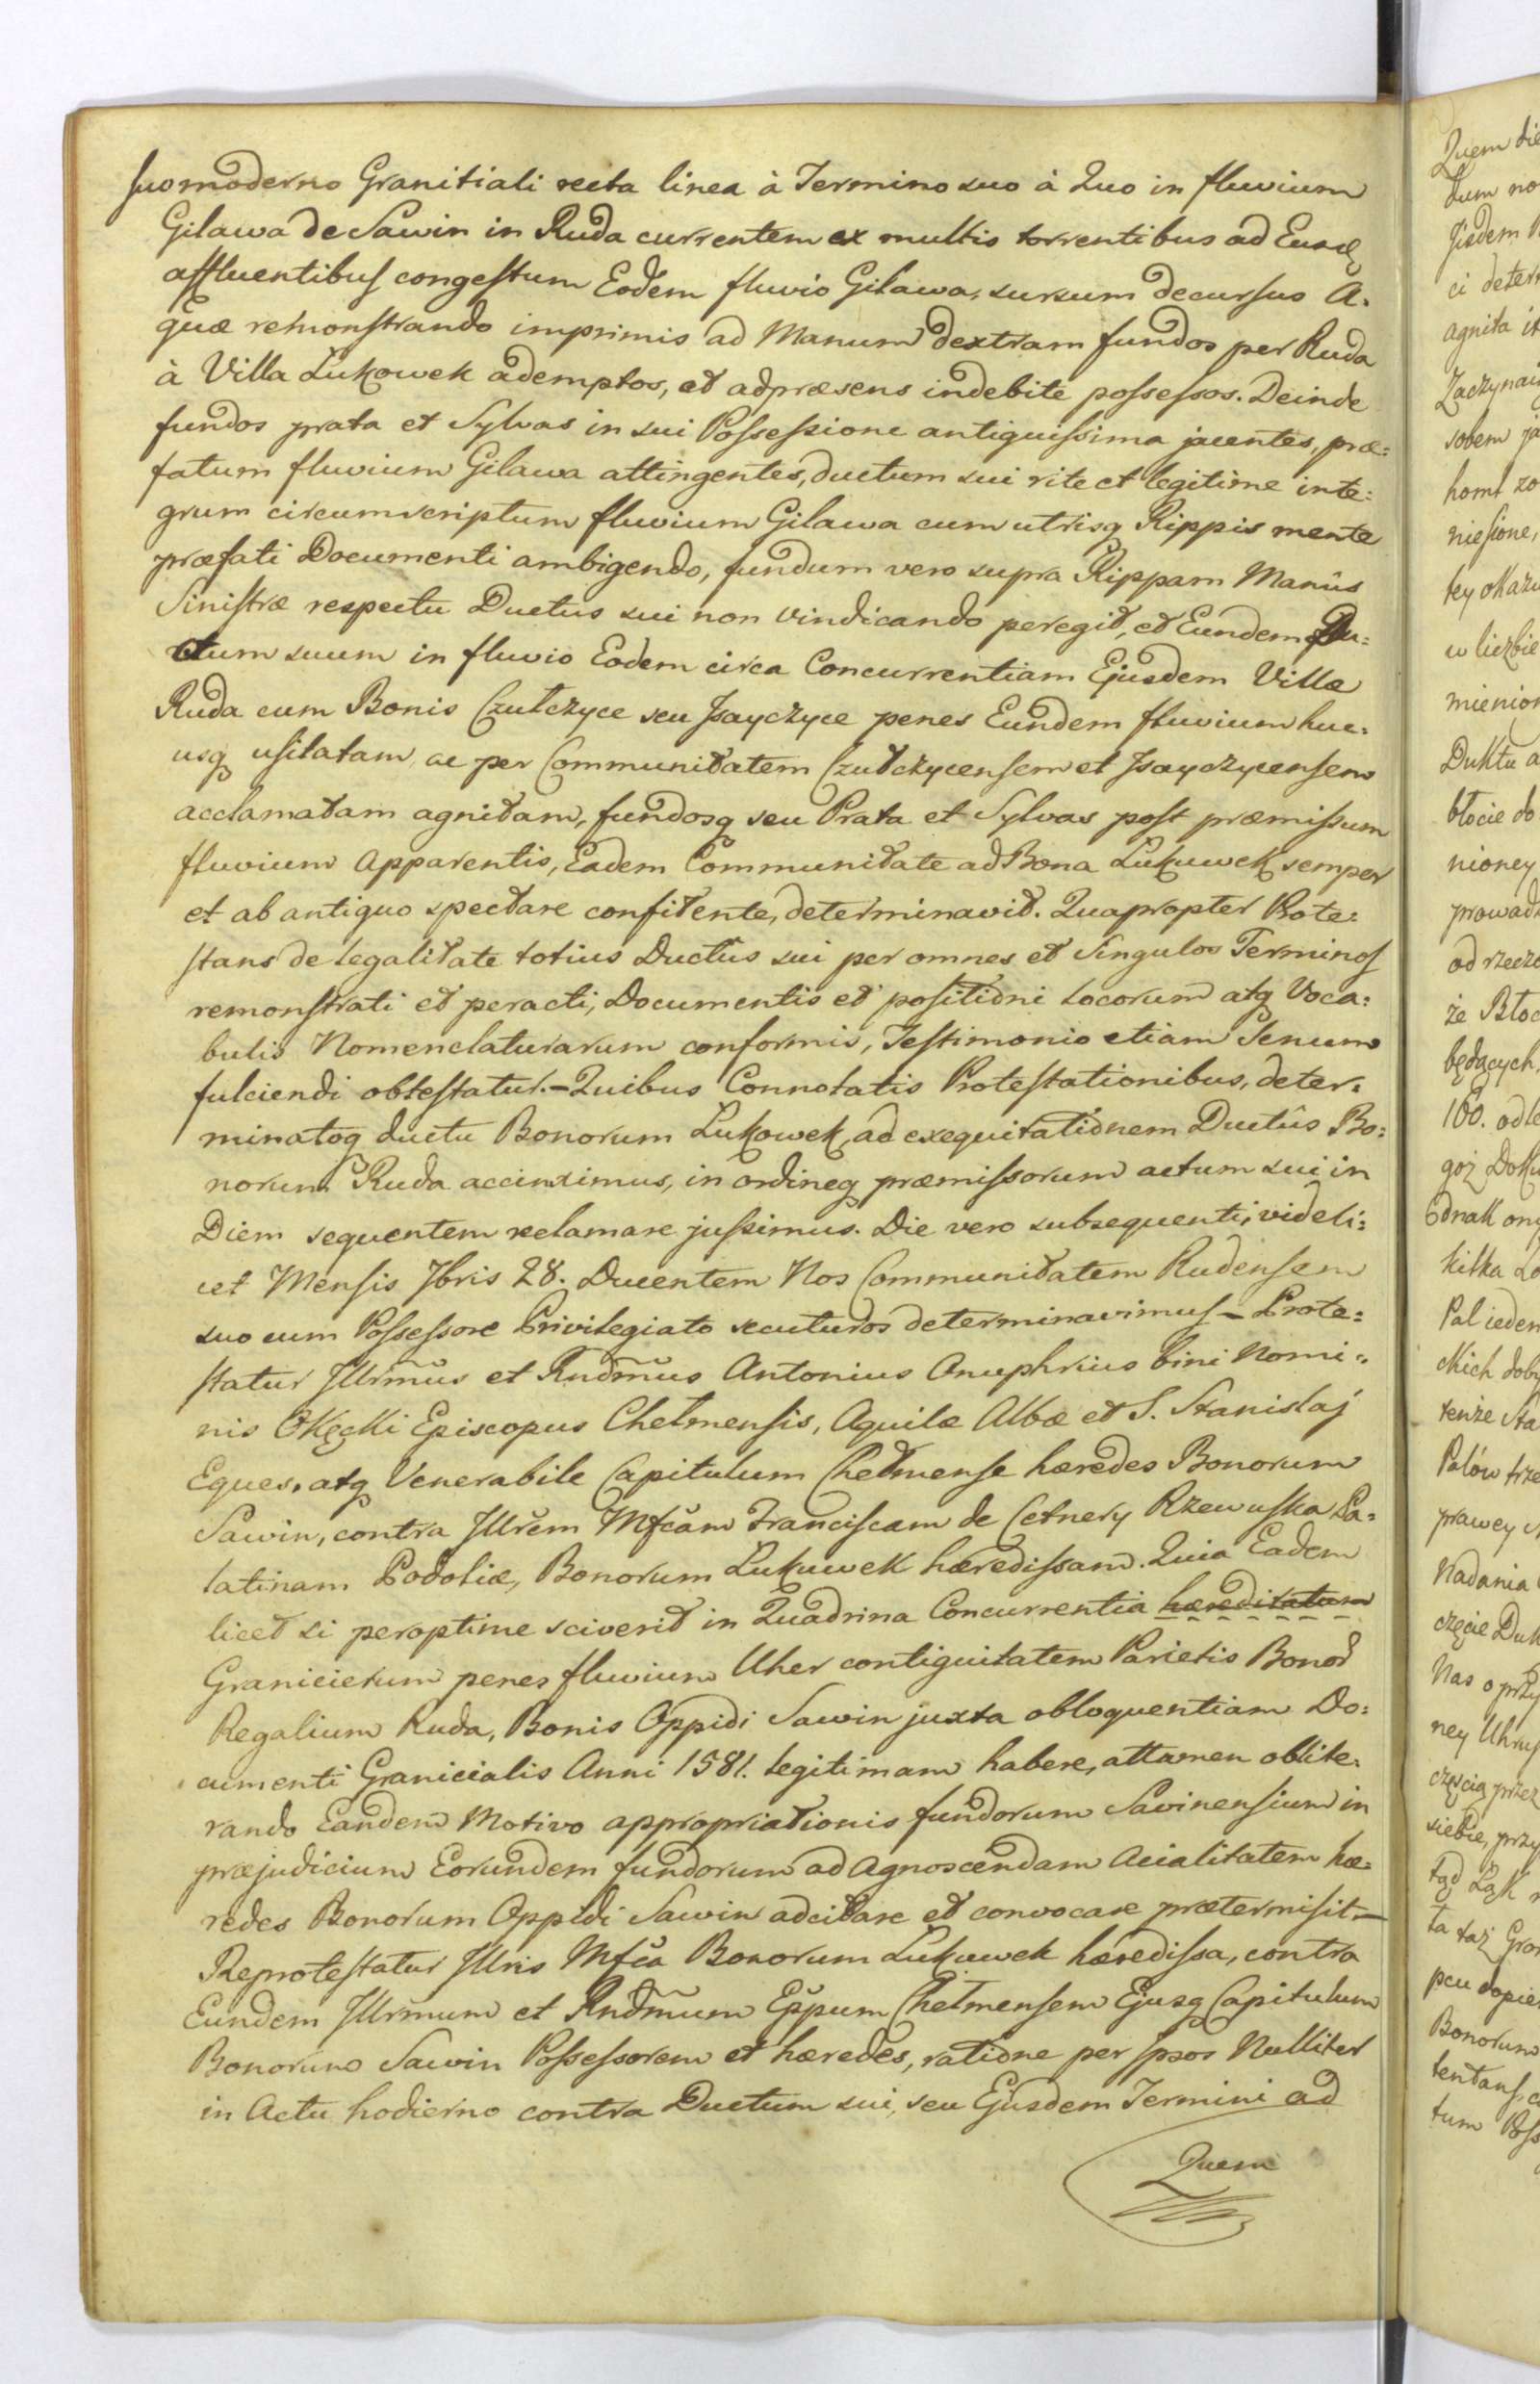 suo moderno Granitiali recta linea à Termino suo à Quo in fluvium
Gilawa de Sawin in Ruda currentem ex multis torrentibus ad Eund
affluentibus congestum Eodem fluvio Gilawa, sursum decursus A-
quæ remonstrando imprimis ad Manum dextram fundos per Ruda
à Villa Lukowek ademptos, et adpræsens indebite possessos. Deinde
fundos prata et Sylvas in sui Possessione antiquissima jacentes, præ=
fatum fluvium Gilawa attingentes, ductum sui rite et legitime inte=
grum circumscriptum fluvium Gilawa cum utrisq Rippis mente
præfati Documenti ambigendo, fundum vero supra Rippam Manûs
Sinistræ respectu Ductus sui non vindicando peregit, et Eundem Du=
ctum suum in fluvio Eodem circa Concurrentiam Ejusdem Villæ
Ruda cum Bonis Czułczyce seu Jsayczyce penes Eundem fluvium huc=
usq usitatam, ac per Communitatem Czułczycensem et Jsayczycensem
acclamatam agnitam, fundosq seu Prata et Sylvas post præmissum
fluvium Apparentis, Eadem Communitate ad Bona Lukuwek semper
et ab antiquo spectare confitente, determinavit. Quapropter Prote=
stans de legalitate totius Ductûs sui per omnes et Singulos Terminos
remonstrati et peracti, Documentis et positioni Locorum atq Voca=
bulis Nomenclaturarum conformis, Testimonio etiam Senum
fulciendi obtestatur.- Quibus Connotatis Protestationibus, deter=
minatoq ductu Bonorum Lukowek, ad exequitationem Ductûs Bo=
norum Ruda accinximus, in ordineq præmissorum actum sui in
Diem sequentem reclamare jussimus. Die vero subsequenti, videli=
cet Mensis Jbris 28. Ducentem Nos Communitatem Rudensem
suo cum Possessore Privilegiato secuturos determinavimus - Prote=
statur Jllrmus et Rndmus Antonius Onuphrius bini Nomi=
nis Okęcki Episcopus Chełmensis, Aquilæ Albæ et S. Stanislaj
Eques, atq Venerabile Capitulum Chełmense hæredes Bonorum
Sawin, contra Jllrem Mfcam Franciscam de Cetnery Rzewuska Pa=
latinam Podoliæ, Bonorum Lukuwek hæredissam. Quia Eadem
licet si peroptime sciverit in Quadrina Concurrentia hæreditatum
Granicierum penes fluvium Uher contiguitatem Parietis Bonor
Regalium Ruda, Bonis Oppidi Sawin juxta obloquentiam Do=
cumenti Granicialis Anni 1581. legitimam habere, attamen oblite=
rando Eandem Motivo appropriationis fundorum Savinensium in
præjudicium Eorundem fundorum ad Agnoscendam Acialitatem hæ=
redes Bonorum Oppidi Sawin adcitare et convocare prætermisit.-
Reprotestatur Jllris Mfca Bonorum Lukuwek hæredissa, contra
Eundem Jllrmum et Rndmum Eppum Chełmensem Ejusq Capitulum
Bonorum Sawin Possessorem et hæredes, ratione per Jpsos Nulliter
in Actu hodierno contra Ductum sui, seu Ejusdem Termini ad
Quem